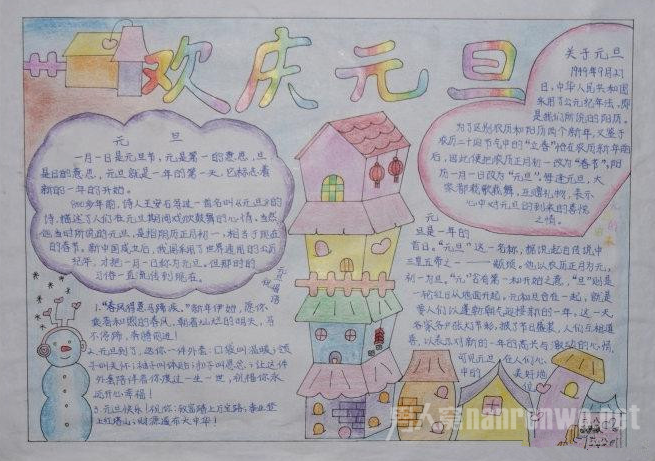 欢庆元旦
元 旦
一月一日是元旦节,元是第一的意思,旦
是日的意思,元旦就是一年的第一天,它标志着
新的一年的开始。
900多年前,诗人王安石写过一首名叫《元旦》的
诗,描述了人们在元旦期间欢欣鼓舞的心情。当然
他当时所说的元旦,是指阴历正月初一,相当于现在
的春节。新中国成立后,我国采用了世界通用的公历
纪年,才把一月一日称为元旦。但那时的
习俗一直流传到现在。
关于元旦
1949年9月27
日,中华人民共和国
采用了公元纪年法,即
是我们所说的阳历。
为了区别农历和阳历两个新年,又鉴于
农历二十四节气中的“立春”恰在农历新年前
后,因此便把农历正月初一改为“春节”,阳
历一月一日改为“元旦”。每逢元旦,大
家都载歌载舞,互赠礼物,表示
心中对元旦的到来的喜悦
之情。
元旦祝福语
1.“春风得意马蹄疾。”新年伊始,愿你
乘着和图的春风,朝着灿烂的明天,马
不停蹄,奔腾前进!
2.元旦到了,送你一件外套:口袋叫温暖;领
子叫关怀;袖子叫体贴;扣子叫思念;让这件
外套陪伴着你渡过一生一世,祝福你永
远开心幸福!
3.元旦快乐!祝你:致富踏上万宝路,事业登
上红塔山,财源遍布大中华!
元
旦是一年的
首日。“元旦”这一名称,据说起自传说中
三皇五帝之一——颛顼。他以农历正月为元,
初一为旦。“元”含有第一和开始之意,“旦”则是
一轮红日从地面升起,元和旦合在一起,就是
要人们以蓬勃朝气迎接新的一年,这一天
各家各户张灯节彩,披了节日盛装,人们互相道
喜,以表示对新的一年的高兴与激动的心情,
可见元旦,在人们心
中的
美好地
位。
男人窝nanrenwo.net